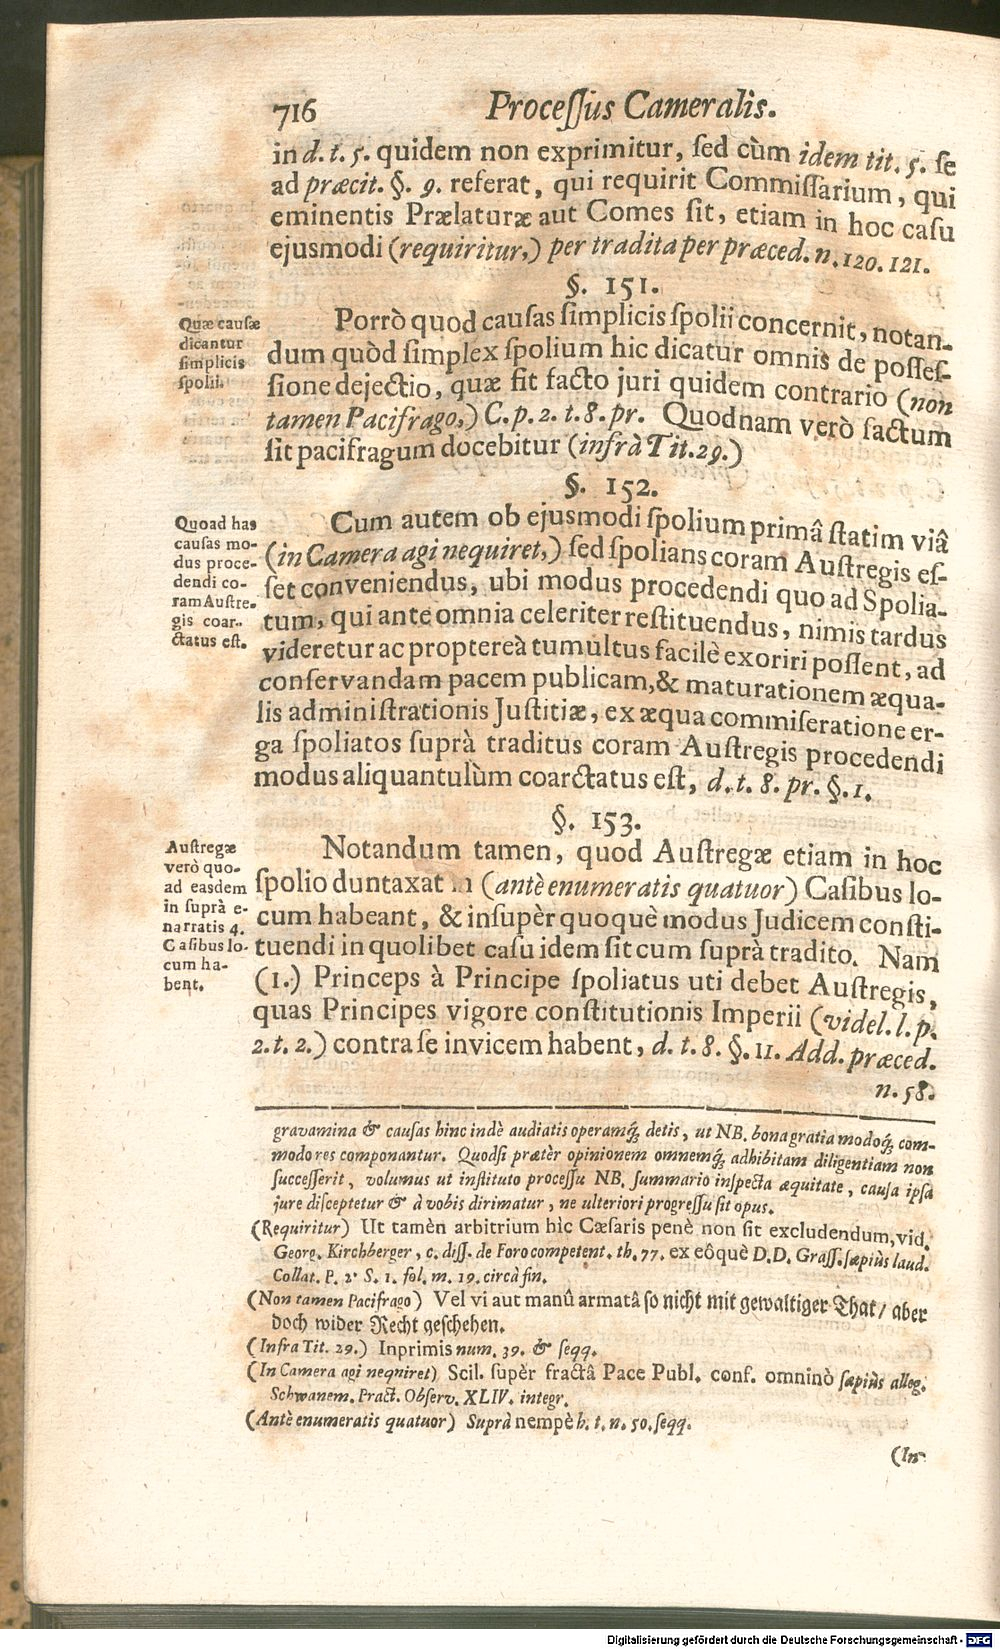 716 Proceſſus Cameralis.
in d. t. 5. quidem non exprimitur, ſed cùm idem tit. 5. ſe
ad præcit. §. 9. referat, qui requirit Commiſſarium, qui
eminentis Prælaturæ aut Comes ſit, etiam in hoc caſu
ejusmodi (requiritur,) per tradita per præced. n. 120. 121.
§. 151.
Quæ cauſæ
dicantur
ſimplicis
ſpolii.
Porrò quod cauſas ſimplicis ſpolii concernit, notan-
dum quòd ſimplex ſpolium hic dicatur omnis de poſſeſ-
ſione dejectio, quæ fit facto juri quidem contrario (non
tamen Pacifrago,) C. p. 2. t. 8. pr. Quodnam verò factum
ſit pacifragum docebitur (infrà Tit. 29.)
§. 152.
Quoad has
cauſas mo-
dus proce-
dendi co-
ram Auſtre-
gis coar-
ctatus eſt.
Cum autem ob ejusmodi ſpolium primâ ſtatim viâ
(in Camera agi nequiret,) ſed ſpolians coram Auſtregis eſ-
ſet conveniendus, ubi modus procedendi quo ad Spolia-
tum, qui ante omnia celeriter reſtituendus, nimis tardus
videretur ac proptereà tumultus facilè exoriri poſſent, ad
conſervandam pacem publicam, & maturationem æqua-
lis adminiſtrationis Juſtitiæ, ex æqua commiſeratione er-
ga ſpoliatos ſuprà traditus coram Auſtregis procedendi
modus aliquantulùm coarctatus eſt, d. t. 8. pr. §. 1.
§. 153.
Auſtregæ
verò quo-
ad easdem
in ſuprà e-
narratis 4.
Caſibus lo-
cum ha-
bent.
Notandum tamen, quod Auſtregæ etiam in hoc
ſpolio duntaxat in (antè enumeratis quatuor) Caſibus lo-
cum habeant, & inſupèr quoquè modus Judicem conſti-
tuendi in quolibet caſu idem ſit cum ſuprà tradito. Nam
(1.) Princeps à Principe ſpoliatus uti debet Auſtregis,
quas Principes vigore conſtitutionis Imperii (videl. l. p.
2. t. 2.) contra ſe invicem habent, d. t. 8. §. 11. Add. præced.
n. 58.
gravamina & cauſas hinc indè audiatis operamq́; detis, ut NB. bona gratia modoq́; com-
modo res componantur. Quodſi præter opinionem omnemq́; adhibitam diligentiam non
ſucceſſerit, volumus ut inſtituto proceſſu NB. ſummario inſpecta æquitate, cauſa ipſa
jure diſceptetur & à vobis dirimatur, ne ulteriori progreſſu ſit opus.
(Requiritur) Ut tamèn arbitrium hìc Cæſaris penè non ſit excludendum, vid.
Georg. Kirchberger, c. diſſ. de Foro competent. th. 77. ex eôquè D.D. Graſſ. ſæpiùs laud.
Collat. P. 2. S. 1. fol. m. 19. circà fin.
(Non tamen Pacifrago) Vel vi aut manû armatâ ſo nicht mit gewaltiger That/ aber
doch wider Recht geſchehen.
(Infra Tit. 29.) Inprimis num. 39. & ſeqq.
(In Camera agi neqniret) Scil. ſupèr fractâ Pace Publ. conf. omninò ſæpiùs alleg.
Schwanem. Pract. Obſerv. XLIV. integr.
(Antè enumeratis quatuor) Suprà nempè h. t. n. 50. ſeqq.
(In
Digitalisierung gefördert durch die Deutsche Forschungsgemeinschaft - DFG